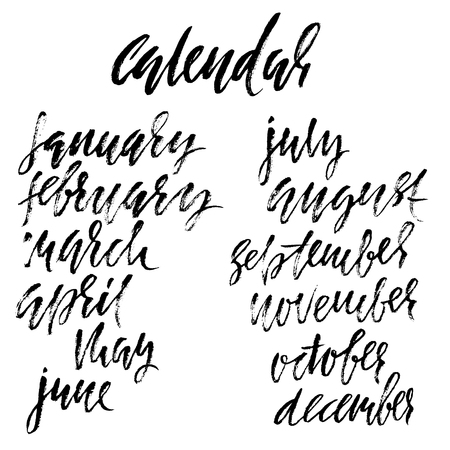 calendar
january
february
march
april
may
june
july
august
september
november
october
december